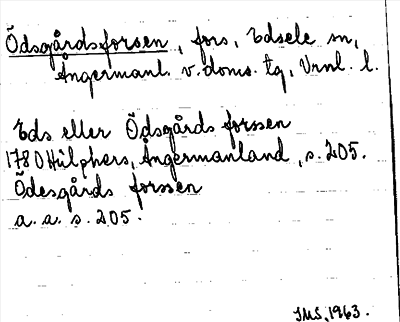 Ödsgårdsforsen, fors, Edsele sn,
Ångermanl. v. doms. tg, Vrnl. l.
Eds eller Ödsgårds forssen
1780 Hülphers, Ångermanland, s. 205.
Ödesgårds forssen
a. a. s. 205.
IMS, 1963.